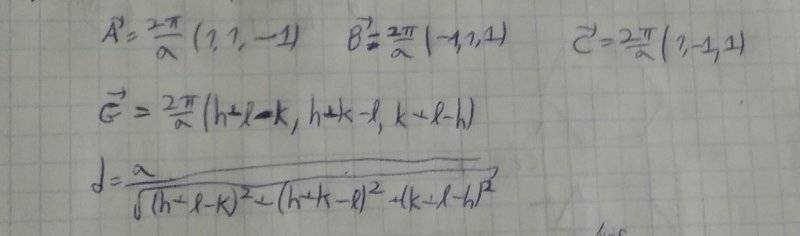 A⃗ = 2π/a (1, 1, -1) B⃗ = 2π/a (-1, 1, 1) C⃗ = 2π/a (1, -1, 1)
G⃗ = 2π/a (h+l-k, h+k-l, k+l-h)
d = a/√((h+l-k)² + (h+k-l)² + (k+l-h)²)